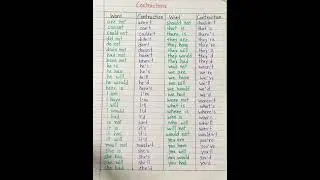 Contractions
Word Contraction Word Contraction
are not aren't should not shouldn't
cannot can't that is that's
could not couldn't there is there's
did not didn't they are they're
do not don't they have they've
they will they'll
had not hadn't they would they'd
have not haven't they had they'd
he is he's we are we're
he has he's we have we've
he will he'll we will we'll
he would he'd we had we'd
I am I'm were not weren't
I have I've what is what's
I will I'll where is where's
I would I'd who is who's
I had I'd who will who'll
is not isn't will not won't
it is it's would not wouldn't
it has it's you are you're
it will it'll you have you've
must not mustn't you will you'll
she is she's you would you'd
she has she's you had you'd
she will she'll
she had she'd